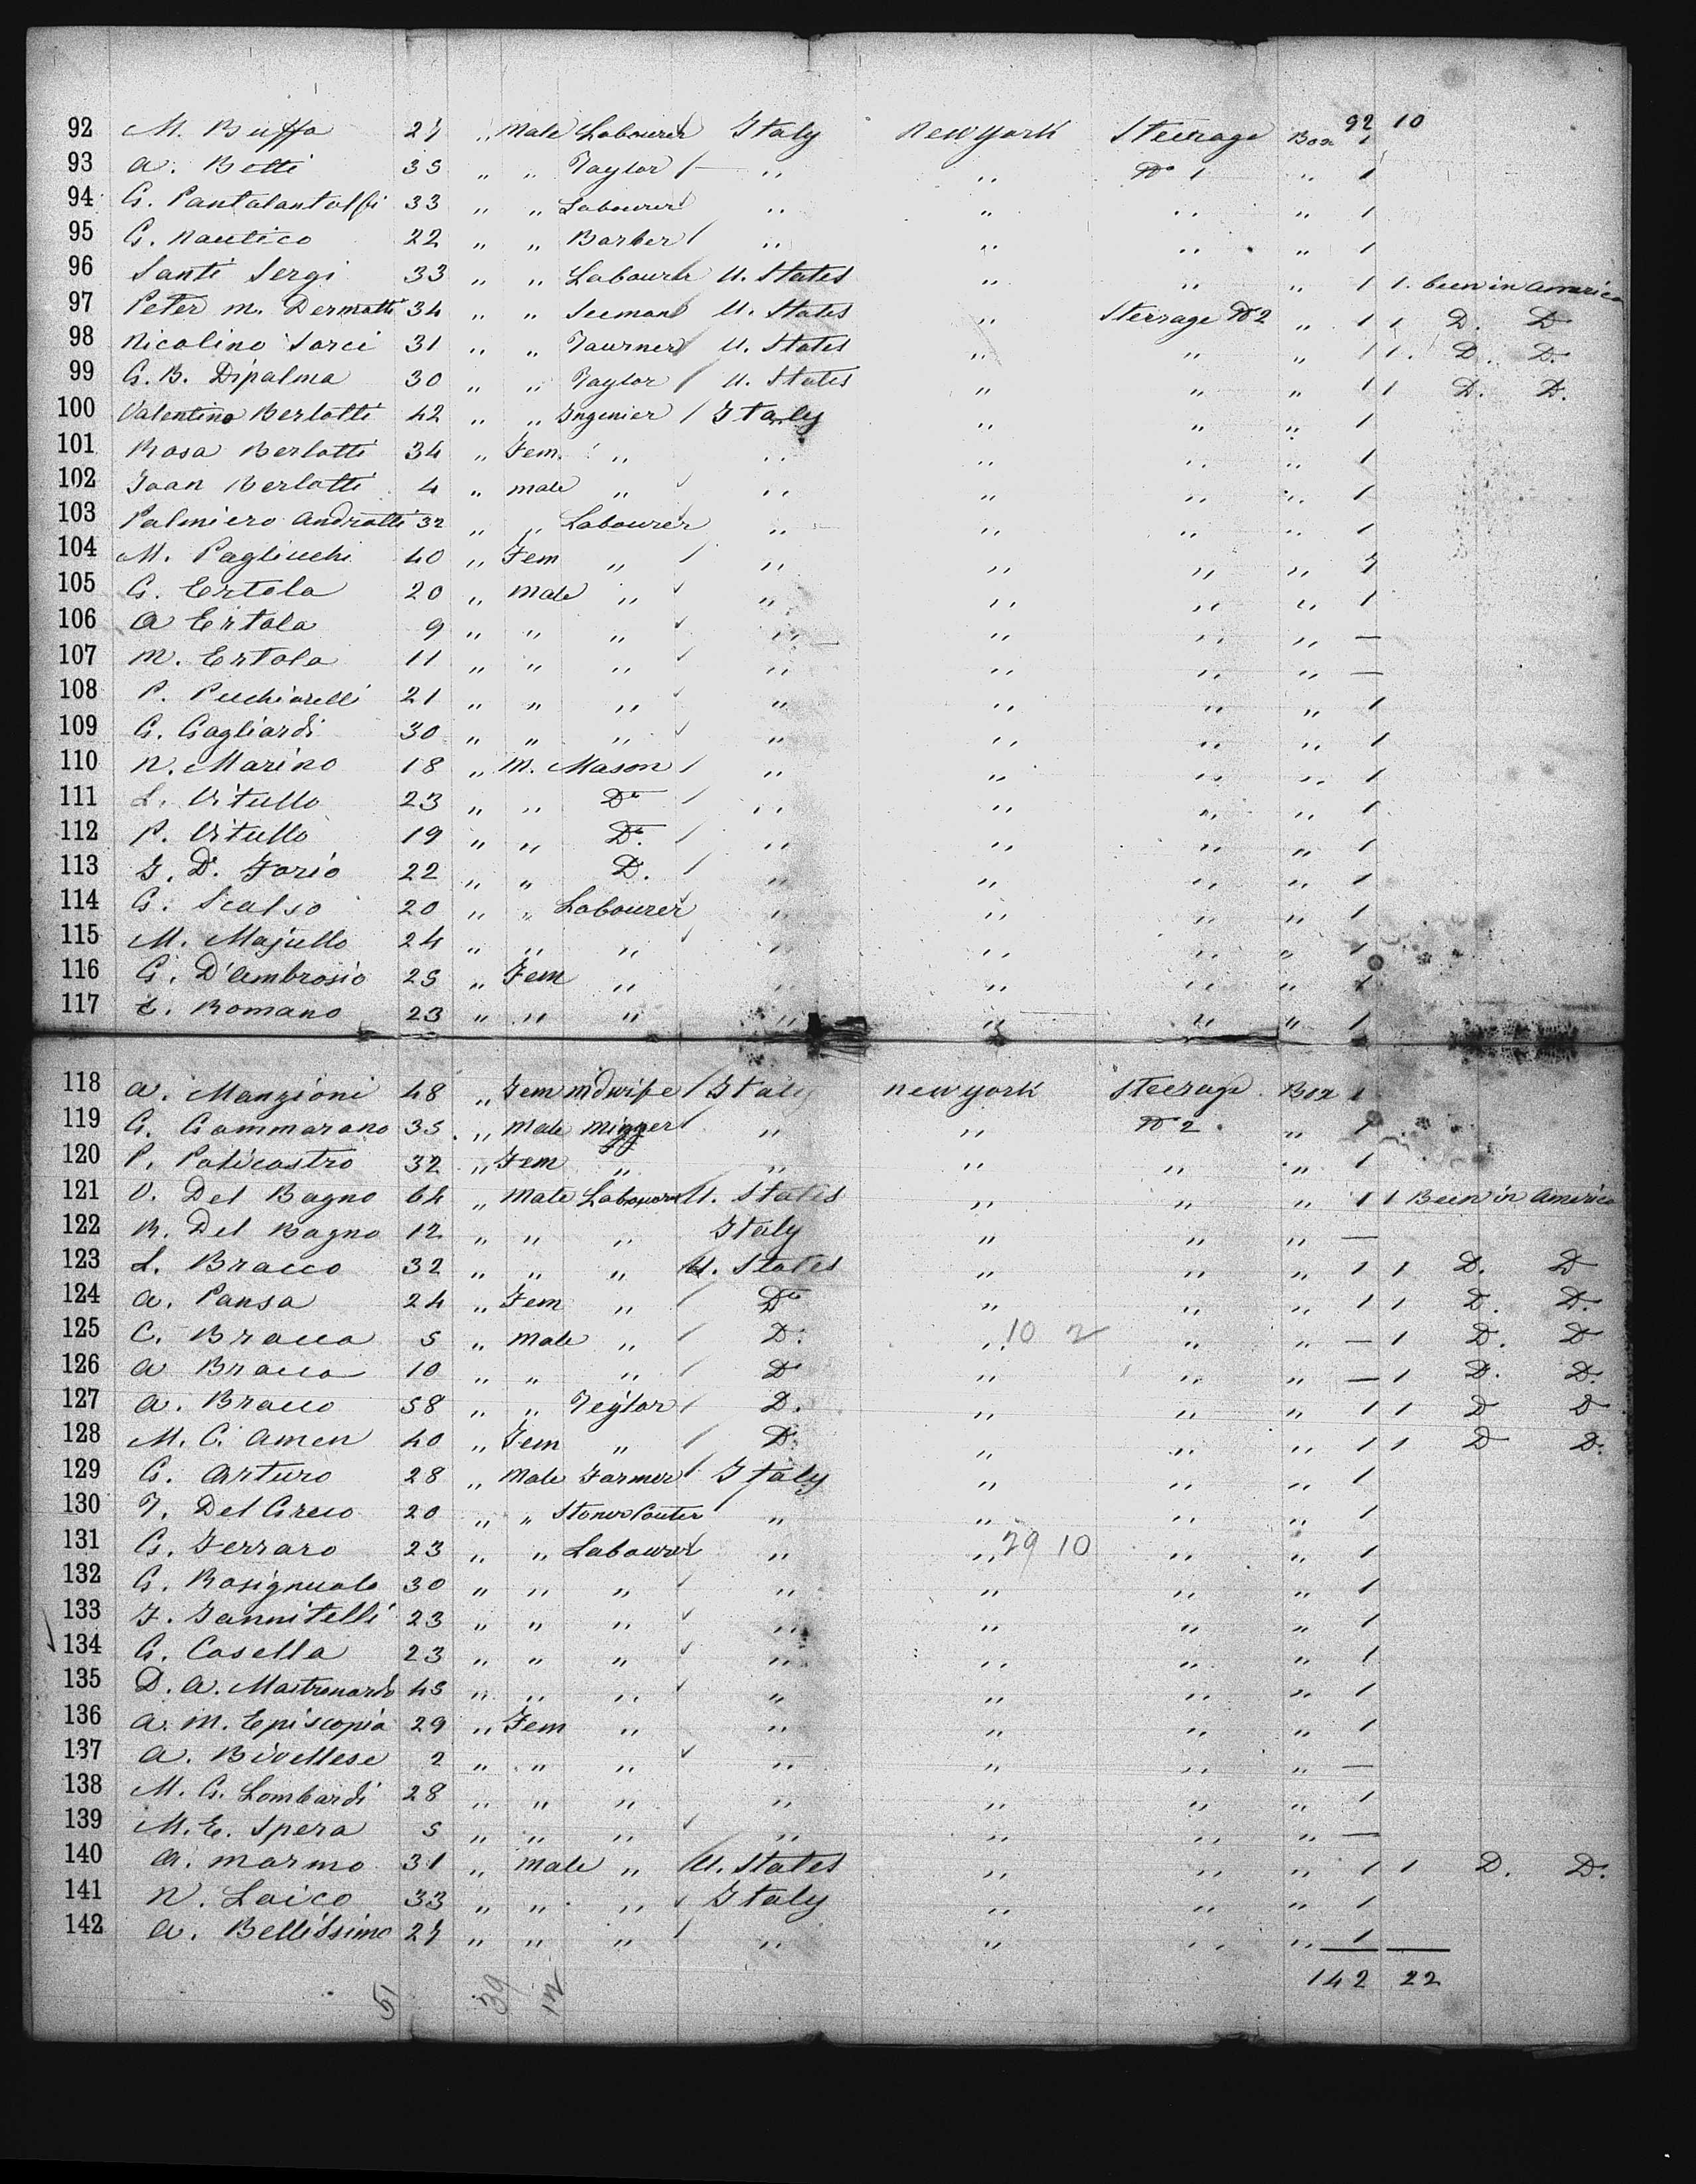 92 10
92 M. Buffa 27 " Male Labourer Italy New York Steerage Box 1
93 A. Botti 35 " " Taylor / " " Do 1 " 1
94 G. Pantalantolfi 33 " " Labourer " " " " 1
95 G. Nautico 22 " " Barber / " " " " 1
96 Santi Sergi 33 " " Labourer U. States " " " 1 1. been in America
97 Peter M. Dermatti 34 " " Seeman U. States " Steerage No 2 " 1 1 D. D
98 Nicolino Sorci 31 " " Taurner U. States " " " 1 1. D. D.
99 G. B. Dipalma 30 " " Taylor / U. States " " " 1 1 D. D.
100 Valentino Berlotti 42 " " Ingenier / Italy " " " 1
101 Rosa Berlotti 34 " Fem. " " " " " 1
102 Joan Berlotti 4 " male " " " " " 1
103 Palmiero Andratti 32 " " Labourer " " " " 1
104 M. Pagliuchi 40 " Fem " / " " " " 1
105 G. Ertola 20 " Male " " " " " 1
106 A Ertola 9 " " " " " " " —
107 M. Ertola 11 " " " " " " " —
108 P. Pechiarelli 21 " " " " " " " 1
109 G. Gagliardi 30 " " " " " " " 1
110 N. Marino 18 " M. Mason / " " " " 1
111 L. Vitullo 23 " " Do / " " " " 1
112 P. Vitullo 19 " " Do. / " " " " 1
113 G. D. Forio 22 " " D. / " " " " 1
114 G. Scalso 20 " " Labourer " " " " 1
115 M. Majullo 24 " " " " " " " 1
116 G. D'Ambrosio 25 " Fem " " " " " 1
117 C. Romano 23 " " " " " " " 1
118 A. Manzioni 48 " Fem mdwife / Italy New York Steerage Box 1
119 G. Gammarano 35 " Male Migger / " " No 2 " 1
120 P. Policastro 32 " Fem " " " " " 1
121 V. Del Bagno 64 " Male Labourer U. States " " " 1 1 Been in America
122 R. Del Bagno 12 " " " Italy " " " —
123 L. Bracco 32 " " " U. States " " " 1 1 D. D
124 A. Pansa 24 " Fem " / Do " " " 1 1 D. D.
125 C. Bracco 5 " Male " / D. " 10 2 " " — 1 D. D
126 A Bracco 10 " " " / D " " " — 1 D. D.
127 A. Bracco 58 " " Teylor / D. " " " 1 1 D D
128 M. C. Amen 40 " Fem " / D. " " " 1 1 D D.
129 G. Arturo 28 " Male Farmer / Italy " " " 1
130 T. Del Greco 20 " " Stoner Couter " " " " 1
131 G. Ferraro 23 " " Labourer " " 29 10 " " 1
132 G. Rosignuolo 30 " " " " " " " 1
133 F. Iannitelli 23 " " " " " " " 1
134 G. Casella 23 " " " " " " " 1
135 D. A. Mastronardo 45 " " " " " " " 1
136 A. M. Episcopia 29 " Fem " " " " " 1
137 A. Bivellese 2 " " " " " " " —
138 M. G. Lombardi 28 " " " " " " " 1
139 M. E. Spera 5 " " " " " " " —
140 A. Marmo 31 " Male " / U. States " " " 1 1 D. D.
141 N. Loico 33 " " " Italy " " " 1
142 A. Bellissimo 27 " " " / " " " " 1
142 22
51 39 12